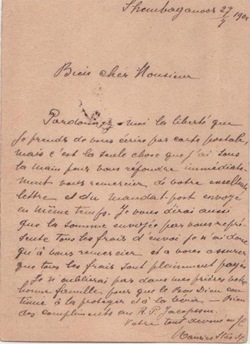 Shembaganoor 27/9 190
Bien cher Monsieur
Pardonnez-moi la liberté que
je prends de vous écrire par carte postale,
mais c'est la seule chose que j'ai sous
la main pour vous répondre immédiate-
ment vous remercier de votre excellente
lettre et du mandat-post envoyé
en même temps. Je vous dirai aussi
que la somme envoyée par vous repré-
sente tous les frais d'envoi je n'ai donc
qu'à vous remercier et à vous assurer
que tous les frais sont pleinement payés
Je n'oublierai pas dans mes prières votre
bonne famille pour que le Bon Dieu con-
tinue à la protéger et à la bénir — Bien
des compliments au R. P.
Votre tout dévoué en